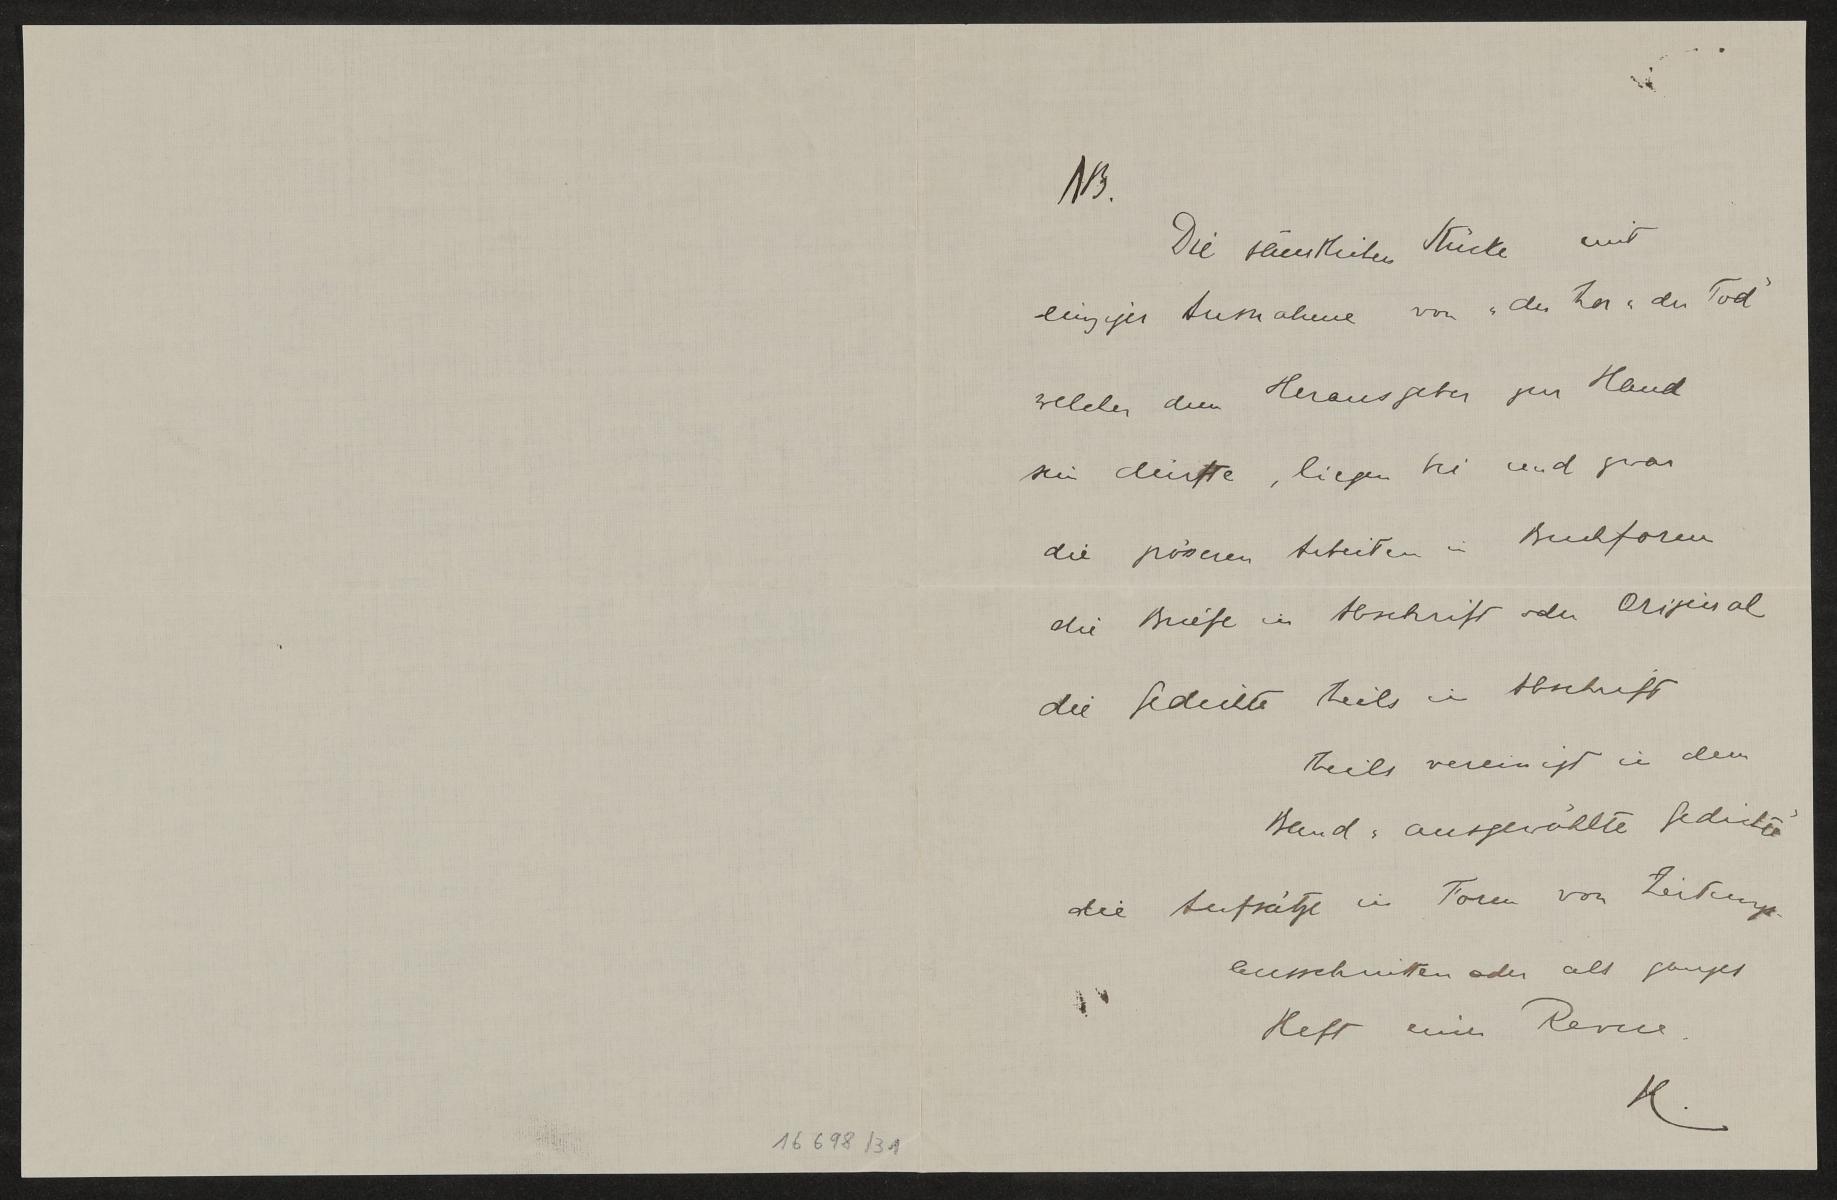 NB.
Die sämtlichen Stücke mit
einziger Ausnahme von „der Tor u der Tod"
welcher dem Herausgeber zur Hand
sein dürfte, liegen bei und zwar
die grösseren Arbeiten in Buchform
die Briefe in Abschrift oder Original
die Gedichte theils in Abschrift
theils vereinigt in dem
Band „ausgewählte Gedichte"
die Aufsätze in Form von Zeitungs-
ausschnitten oder als ganzes
Heft einer Revue.
H.
16 698/31